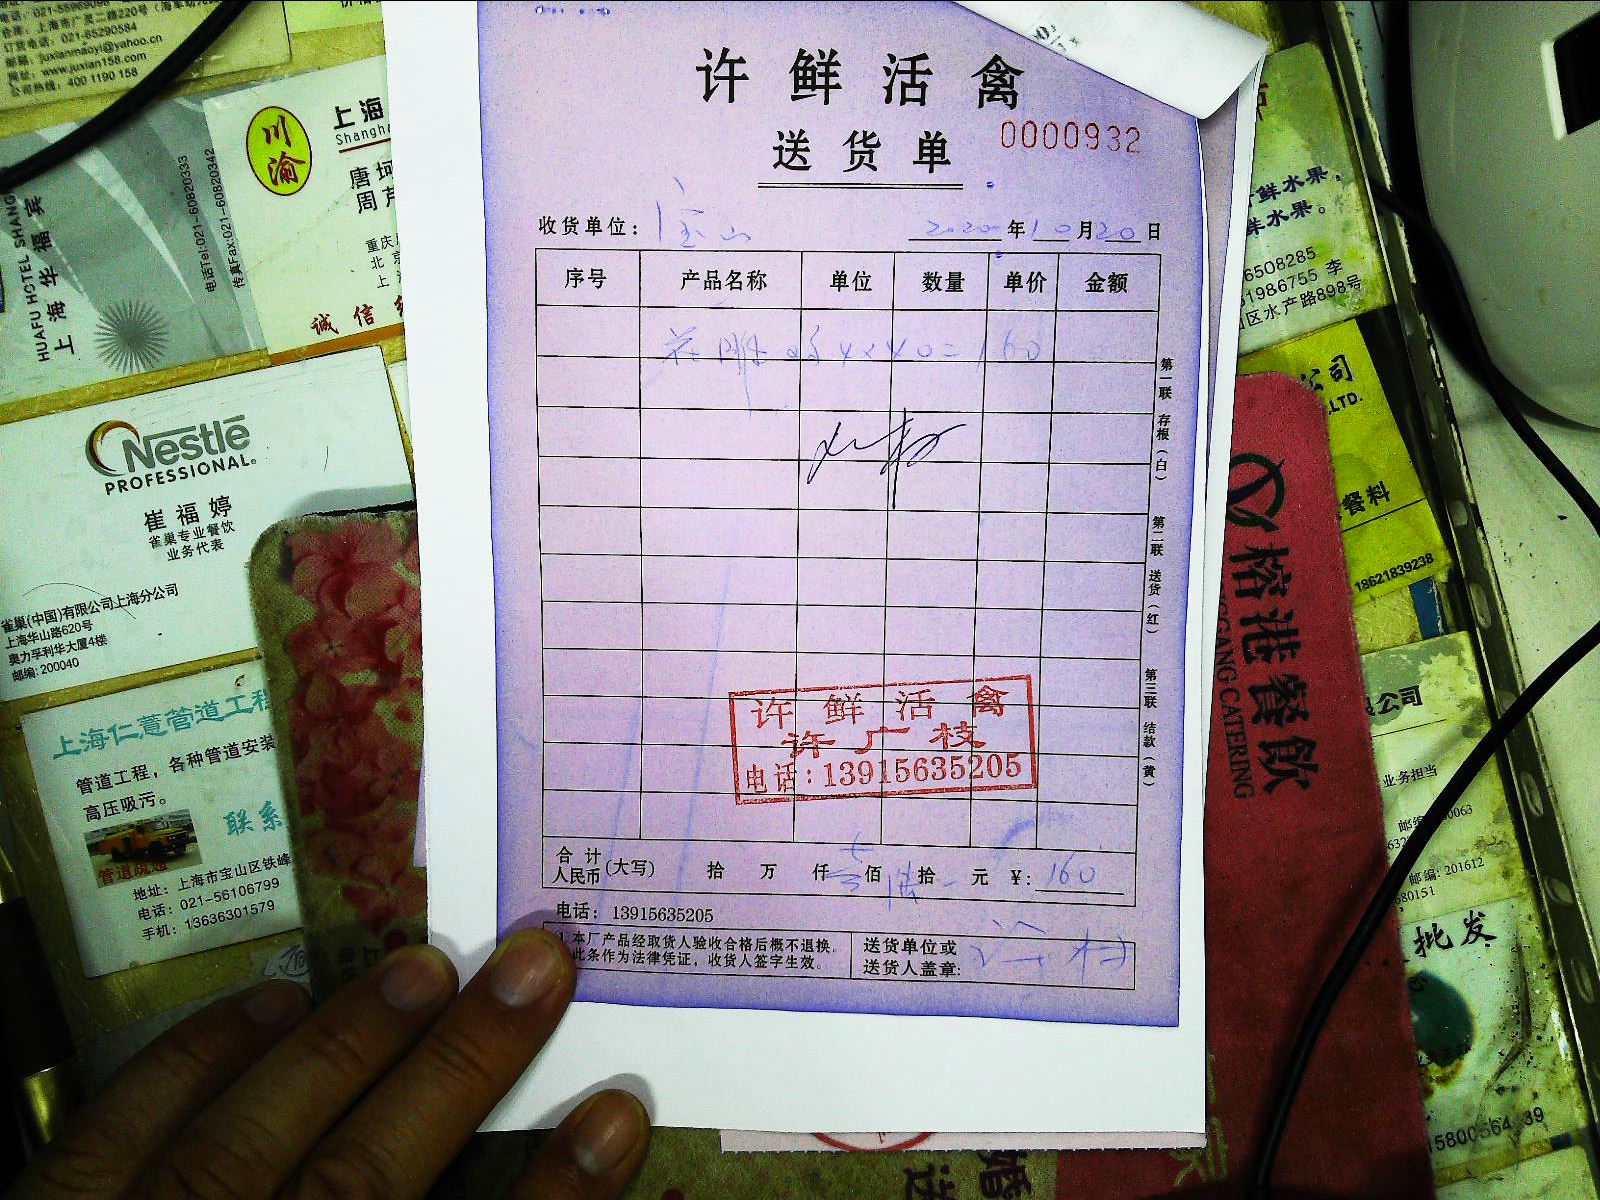 许鲜活禽
送货单
0000932
收货单位： 宝山
2020年10月20日
序号 产品名称 单位 数量 单价 金额
花雕 4×40=160
第一联 存根（白）
第二联 送货（红）
第三联 结款（黄）
许鲜活禽
许广枝
电话:13915635205
合计人民币(大写) 拾 万 仟 壹佰 拾 元 ¥: 160
电话: 13915635205
1.本厂产品经取货人验收合格后概不退换。
此条作为法律凭证，收货人签字生效。
送货单位或
送货人盖章:
电话: 021-5596909
合庠: 上海市广灵二路220号
订货电话: 021-65290584
邮箱: juxianmaoyi@yahoo.cn
网址: www.juxian158.com
公司热线: 400 1190 158
HUAFU HOTEL SHANG
上海华福宾
电话Tel:021-60820333
传真Fax:021-60820342
川渝
上海
Shangha
唐
周
重庆
北京
上
诚信
Nestlé
PROFESSIONAL®
崔福婷
雀巢专业餐饮
业务代表
雀巢(中国)有限公司上海分公司
上海华山路620号
奥力孚利华大厦4楼
邮编: 200040
上海仁薏管道工程
管道工程，各种管道安装
高压吸污。
联系
管道疏通
地址: 上海市宝山区铁峰
电话: 021-56106799
手机: 13636301579
鲜水果，
鲜水果。
6508285
61986755 李
区水产路898号
公司
.LTD.
餐料
18621839238
榕港餐饮
GANG CATERING
公司
业务担当
邮编: 201612
680151
批发